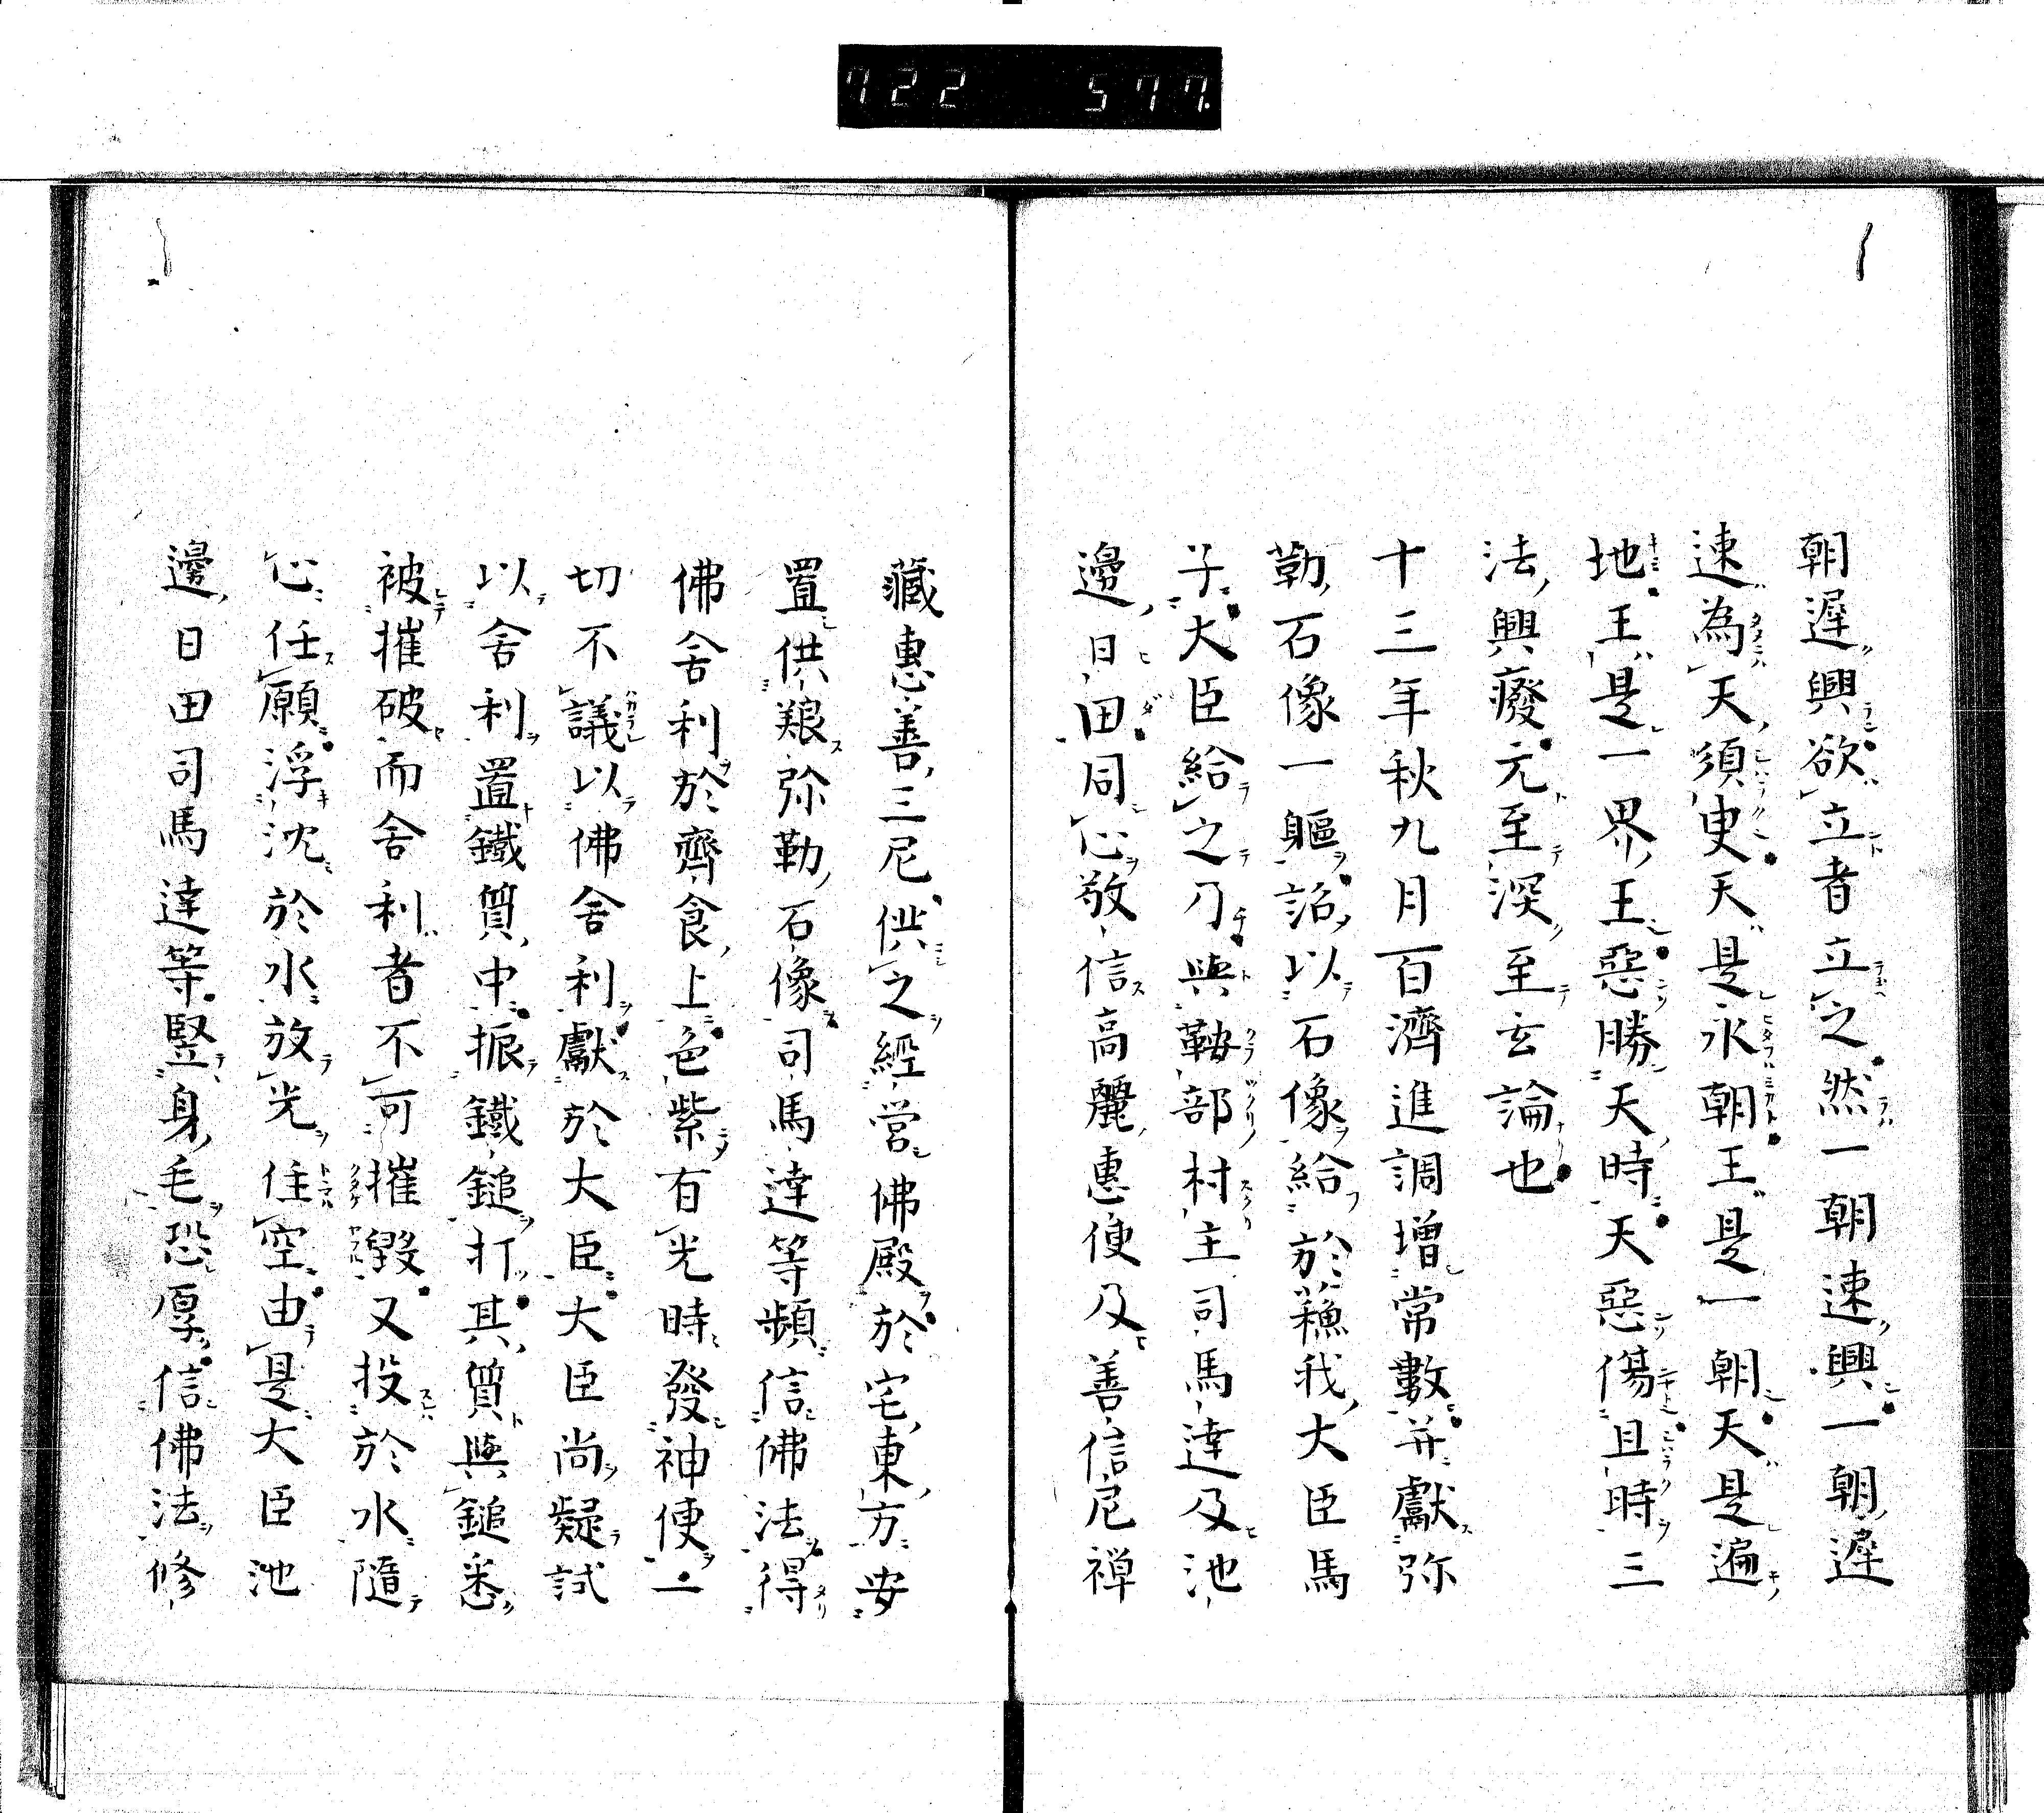 722 577
朝遅興欲立者立之然一朝速興一朝遅
速為天須臾天是永朝王是一朝天是遍
地王是一界王惡勝天時天惡傷且時三
法興癈元至深至玄論也
十三年秋九月百濟進調增常數并獻弥
勒石像一軀詔以石像給於蘓我大臣馬
子大臣給之乃與鞍部村主司馬達及池
邊日田同心敬信高麗惠便及善信尼禅
藏惠善三尼供之經営佛殿於宅東方安
置供粮弥勒石像司馬達等頻信佛法得
佛舎利於齊食上色紫有光時發神便一
切不議以佛舎利獻於大臣大臣尚疑試
以舎利置鐵質中振鐵鎚打其質與鎚悉
被摧破而舎利者不可摧毀又投於水隨
心任願浮沈於水放光住空由是大臣池
邊日田司馬達等竪身毛恐厚信佛法修